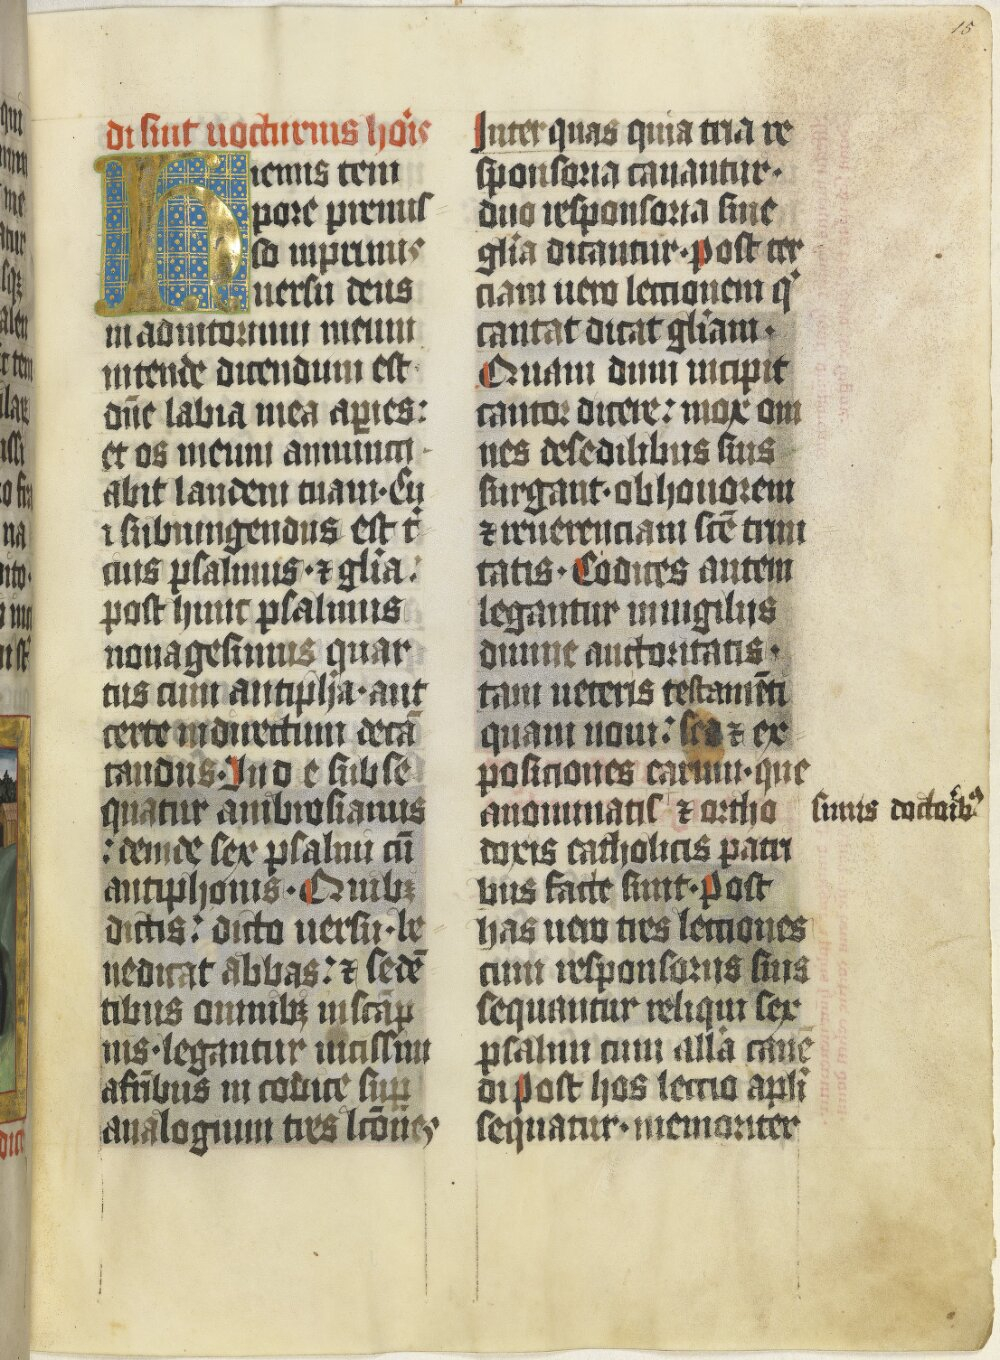 15
di sint nocturnis hoīs
Hiemis tem
pore premis
so inprimis
uersu deus
in adiutorium meum
intende dicendum est·
dn̄e labia mea apies:
et os meum annunci
abit laudem tuam· Cu
i subiungendus est t̄
cius psalmus· ⁊ glīa:
post hunc psalmus
nonagesimus quar
tus cum antipha· aut
certe indirectum decā
tandus· Inde subse
quatur ambrosianus
: deinde sex psalmi cū
antiphonis· Quibꝫ
dictis: dicto uersu· be
nedicat abbas: ⁊ sedē
tibus omnibꝫ inscāp
nis· legantur uicissim
afr̄ibus in codice sup
analogium tres lc̄ones
Inter quas quia tria re
sponsoria canantur·
duo responsoria sine
glīa dicantur· Post ter
ciam uero lectionem q'
cantat dicat glīam·
Quam dum incipit
cantor dicere: mox om
nes desedilibus suis
surgant· obhonorem
⁊ reuerenciam scē trini
tatis· Codices autem
legantur inuigilijs
diuine auctoritatis·
tam ueteris testamēti
quam noui: sed ⁊ ex
posiciones earum· que
anominatis ⁊ ortho
simis doctorib'
doxis catholicis patri
bus facte sunt· Post
has uero tres lectiones
cum responsorijs suis
sequantur reliqui sex
psalmi cum allā canē
di Post hos lectio apli
sequatur· memoriter